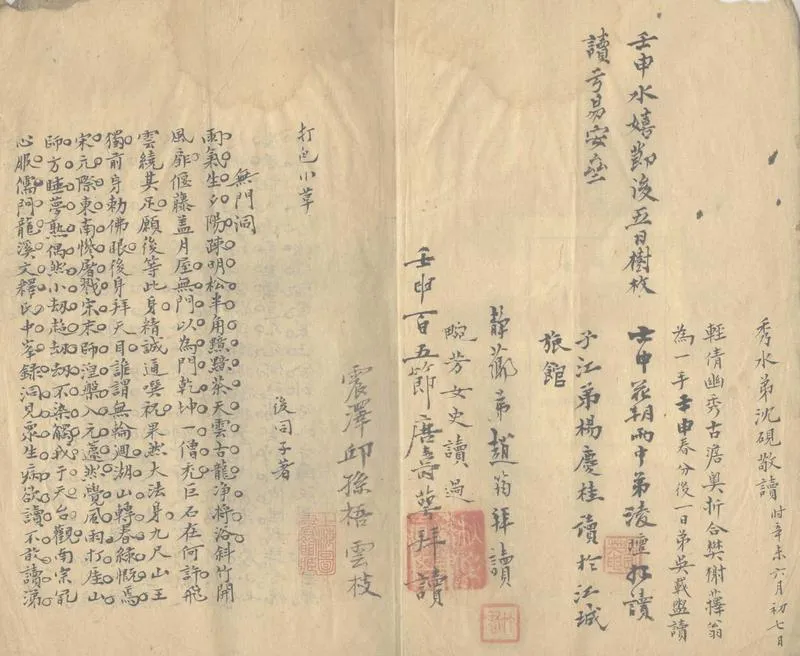 秀水弟沈硯敬讀 時辛未六月初七日
輕倩幽秀古澹奧折合樊榭蘀翁
為一手壬申春分後一日弟吳載盤讀
壬申花朝雨中弟凌壇拜讀
子江弟楊慶桂讀於江城
旅館
壬申水嬉勤後五日樹枚
讀于易安
靜薌弟趙筠拜讀
畹芳女史讀過
壬申百五節唐壽萼拜讀
震澤邱孫梧雲枝
後同子著
打包小草
無門洞
雨氣生夕陽疎明松半角點點茶天雲古龍淨將浴斜竹開
風扉偃藤蓋月屋無門以為門乾坤一僧禿巨石在何許飛
雲繞其足願後等此身精誠通噀祝果然大法身九尺山王
獨前身勅佛眼後身拜天目誰謂無輪迴湖山轉春綠慨焉
宋元際東南慘屠戮宋末師涅槃入元蘧然覺風雨打崖山
師方睡夢熟偶然小劫起劫劫不染觸我于天台觀南宗氣
心服儒門龍溪文釋氏中峯錄洞見衆生病欲讀不於讀涕